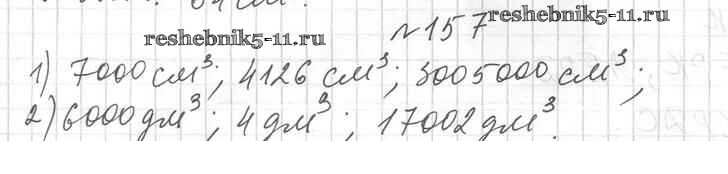 №157
reshebnik5-11.ru
reshebnik5-11.ru
1) 7000 см³; 4126 см³; 3005000 см³;
2) 6000 дм³; 4 дм³; 17002 дм³.